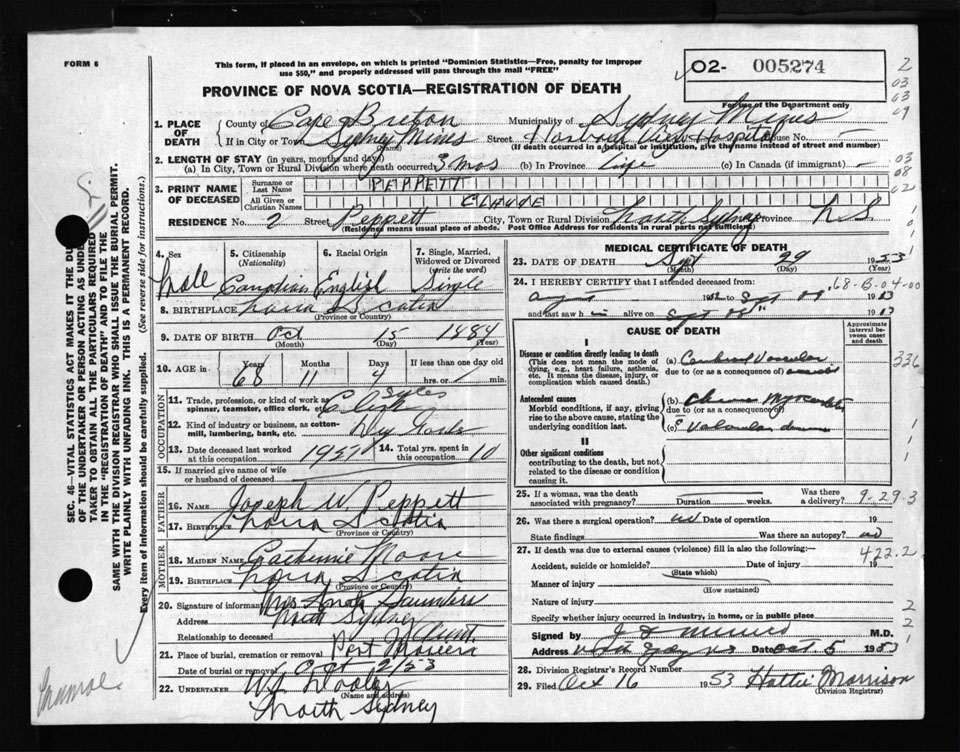 FORM 6
This form, if placed in an envelope, on which is printed "Dominion Statistics—Free, penalty for improper
use $50," and properly addressed will pass through the mail "FREE"
02- 005274
For use of the Department only
PROVINCE OF NOVA SCOTIA—REGISTRATION OF DEATH
1. PLACE OF DEATH
County of Cape Breton Municipality of Sydney Mines
If in City or Town Sydney Mines Street Harbour View Hospital House No. —
(If death occurred in a hospital or institution, give the name instead of street and number)
2. LENGTH OF STAY (in years, months and days)
(a) In City, Town or Rural Division where death occurred 3 mos (b) In Province Life (c) In Canada (if immigrant) —
3. PRINT NAME OF DECEASED
Surname or Last Name PEPPETT
All Given or Christian Names CLAUDE
RESIDENCE No. 2 Street Peppett City, Town or Rural Division North Sydney Province N.S.
(Residence means usual place of abode. Post Office Address for residents in rural parts not sufficient)
4. Sex Male
5. Citizenship (Nationality) Canadian
6. Racial Origin English
7. Single, Married, Widowed or Divorced (write the word) Single
8. BIRTHPLACE Nova Scotia
(Province or Country)
9. DATE OF BIRTH Oct 15 1884
(Month) (Day) (Year)
10. AGE in Years 68 Months 11 Days If less than one day old hrs. or min.
OCCUPATION
11. Trade, profession, or kind of work as spinner, teamster, office clerk, etc. Sales Clerk
12. Kind of industry or business, as cotton-mill, lumbering, bank, etc. Dry Goods
13. Date deceased last worked at this occupation
14. Total yrs. spent in this occupation 10
15. If married give name of wife or husband of deceased
FATHER
16. NAME Joseph W Peppett
17. BIRTHPLACE Nova Scotia
(Province or Country)
MOTHER
18. MAIDEN NAME Catherine Moore
19. BIRTHPLACE Nova Scotia
(Province or Country)
20. Signature of informant Mrs Saunders
Address North Sydney
Relationship to deceased Aunt.
21. Place of burial, cremation or removal Port Morien
Date of burial or removal Oct 2/53
22. UNDERTAKER
(Name and address)
North Sydney
MEDICAL CERTIFICATE OF DEATH
23. DATE OF DEATH Sept 29 1953
(Month) (Day) (Year)
24. I HEREBY CERTIFY that I attended deceased from:
August 19 to Sept 1953
and last saw h alive on Sept 1953
68-B-04-00
CAUSE OF DEATH
Approximate interval between onset and death
I
Disease or condition directly leading to death
(This does not mean the mode of dying, e.g., heart failure, asthenia, etc. It means the disease, injury, or complication which caused death.
(a)
due to (or as a consequence of)
336
Antecedent causes
Morbid conditions, if any, giving rise to the above cause, stating the underlying condition last.
(b)
due to (or as a consequence of)
(c) Valvular
II
Other significant conditions
contributing to the death, but not related to the disease or condition causing it.
25. If a woman, was the death associated with pregnancy? Duration weeks. Was there a delivery?
9-29.3
26. Was there a surgical operation? no Date of operation 19
State findings Was there an autopsy? no
27. If death was due to external causes (violence) fill in also the following:—
422.2
Accident, suicide or homicide? Date of injury 19
(State which)
Manner of injury
(How sustained)
Nature of injury
Specify whether injury occurred in industry, in home, or in public place
Signed by M.D.
Address Date Oct. 5 1953
28. Division Registrar's Record Number
29. Filed Oct 16 1953 Hattie Morrison
(Division Registrar)
SEC. 46—VITAL STATISTICS ACT MAKES IT THE DU
OF THE UNDERTAKER OR PERSON ACTING AS UNDER
TAKER TO OBTAIN ALL THE PARTICULARS REQUIRED
IN THE "REGISTRATION OF DEATH" AND TO FILE THE
SAME WITH THE DIVISION REGISTRAR WHO SHALL ISSUE THE BURIAL PERMIT.
WRITE PLAINLY WITH UNFADING INK. THIS IS A PERMANENT RECORD.
Every item of Information should be carefully supplied. (See reverse side for instructions.)